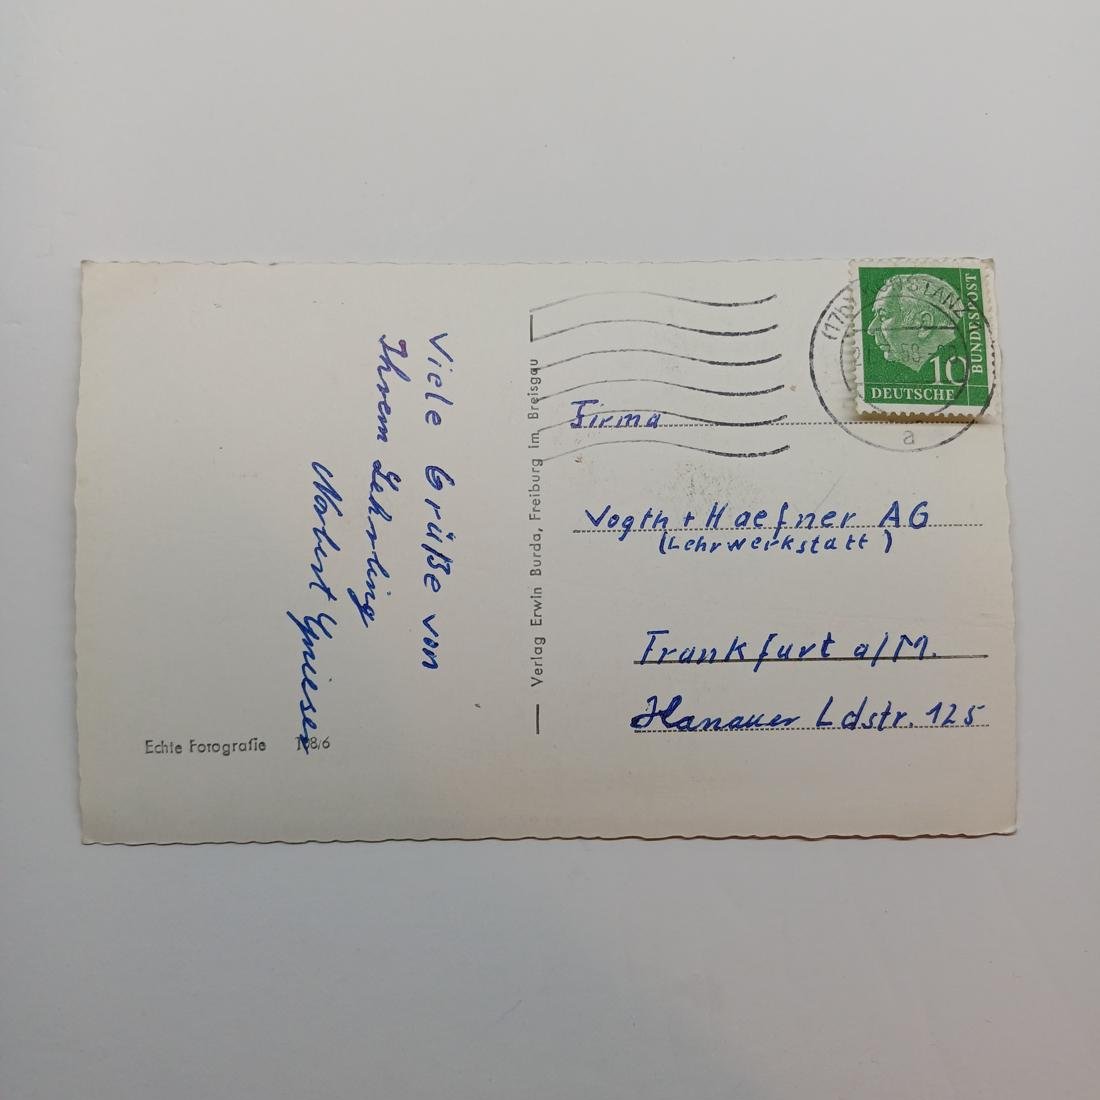 Viele Grüße von
Ihrem Lehrling
Norbert
Echte Fotografie 108/6
Verlag Erwin Burda, Freiburg im Breisgau
(17b) KONSTANZ
58
a
10
DEUTSCHE
BUNDESPOST
Firma
Vogth + Haefner AG
(Lehrwerkstatt)
Frankfurt a/M.
Hanauer Ldstr. 125